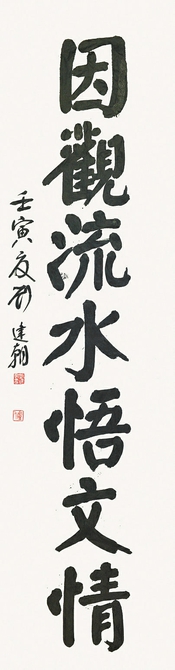 因觀流水悟文情
壬寅夏劉建朝